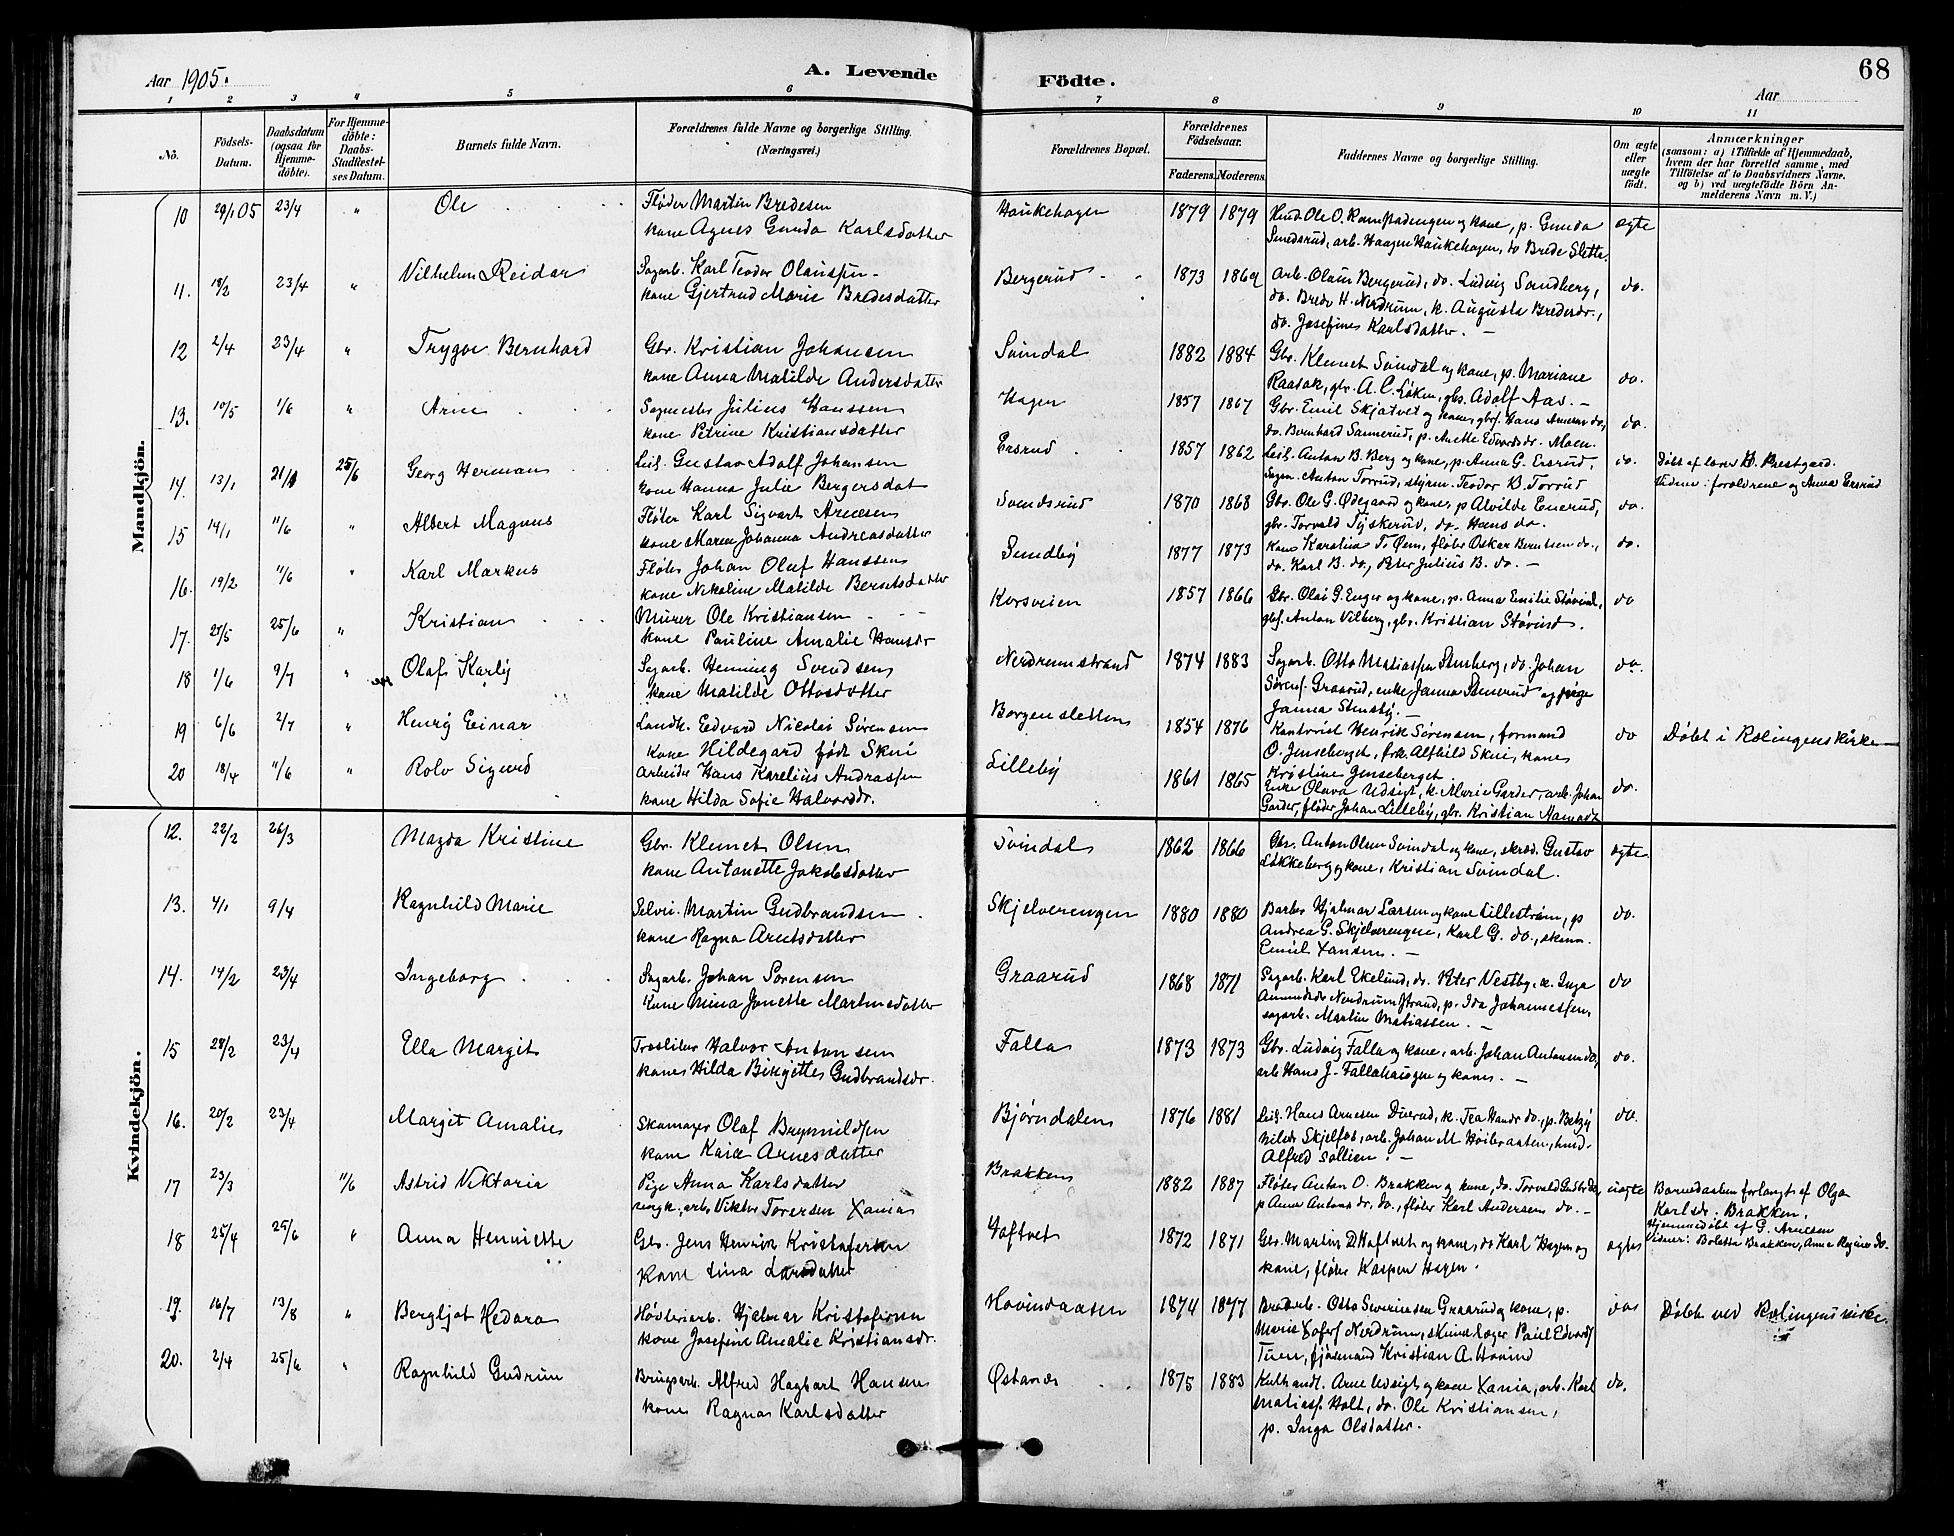 68
Aar 1905.
A. Levende Födte.
Aar
1 2 3 4 5 6 7 8 9 10 11
No.
Födsels-Datum.
Daabsdatum (ogsaa for Hjemme-döbte).
For Hjemme-döbte: Daabs-Stadfestel-ses Datum.
Barnets fulde Navn.
Forældrenes fulde Navne og borgerlige Stilling. (Næringsvei.)
Forældrenes Bopæl.
Forældrenes Födselsaar.
Faderens. Moderens.
Faddernes Navne og borgerlige Stilling.
Om ægte eller uægte födt.
Anmærkninger
(saasom: a) i Tilfælde af Hjemmedaab,
hvem der har forrettet samme, med
Tilföielse af to Daabsvidners Navne.
og b) ved uægtefödte Börn An-
melderens Navn m. V.)
Mandkjön.
10 29/1 05 23/4 " Ole Fløder Martin Bredesen Haukehagen 1879 1879 ægte
kone Agnes Gunda Karlsdatter Smedsrud, arb. Haagen Haukehagen, do Brede Slette
11. 18/2 23/4 " Vilhelm Reidar Sagarb. Karl Teodor Olaussen Bergerud 1873 1869 Arb. Olaus Bergerud, do. Ludvig Sandberg, do.
kone Gjertrud Marie Bredesdatter do. Brede H. Nerdrum, k. Augusta Bredesdr.,
do. Josefine Karlsdatter.
12 2/4 23/4 " Trygve Bernhard Gbr. Kristian Johansen Svindal 1882 1884 Gbr. Klemet Svindal og kone, p. Mariane do.
kone Anna Matilde Andersdatter Raasok, gbr. A. C. Løken, gbs. Adolf Aas.
13. 10/5 1/6 " Arne Sagmester Julius Hanssen Hagen 1857 1867 Gbr. Emil Skjatvet og kone, do.
kone Petrine Kristiansdatter do. Bernhard Sannerud, p. Anette Edvardsdr. Moen.
14. 13/1 21/1 25/6 Georg Herman Leil. Gustav Adolf Johansen Ersrud 1857 1862 Leil. Anton B. Berg og kone, p. Anna G. Ersrud, do. Døbt af lærer B. Prestgard.
kone Hanna Julie Bergersdat Anton Torrud, styrm. Teodor B. Torrud Vidner: forældrene og Anna Ersrud
15 14/1 11/6 " Albert Magnus Fløter Karl Sigvart Arnesen Svendsrud 1870 1868 Gbr. Ole G. Ødegaard og kone, p Alvilde Enerud, do.
kone Maren Johanna Andreasdatter gbr. Torvald Tyskerud, do. Hans do.
16. 19/2 11/6 " Karl Markus Fløter Johan Oluf Hanssen Sundby 1877 1873 Kone Karolina T. Øien, fløter Oskar Berntsen do., do.
kone Nikoline Matilde Berntsdatter do. Karl B. do., Peter Julius B. do.
17. 25/5 25/6 " Kristian Murer Ole Kristiansen Korsveien 1857 1866 Gbr. Olai G. Enger og kone, p. Anna Emilie Støvind, do
kone Pauline Amalie Hansdr gbf. Anton Vilberg, gbr. Kristian Støvind.
18 1/6 9/7 " Olaf Karly Sagarb. Henning Svendsen Nerdrumstrand 1874 1883 Sagarb. Otto Matiassen Stensberg, do. Johan do.
kone Matilde Ottosdatter Sørens. Graarud, enke Janna Stenerud og pige
Janna Stensby.
19 6/6 2/7 " Henry Einar Landh. Edvard Nicolai Sørensen Borgensletten 1854 1876 Kontorist Henrik Sørensen, formand do Døbt i Rælingens kirke
kone Hildegard født Skui O. Jenseberget, frk. Alfhild Skui, kone
Kristine Jenseberget
20 18/4 11/6 " Rolv Sigurd Arbeider Hans Karelius Andrassen Lilleby 1861 1865 Enke Olava Udsigt, k. Marie Garder, arb. Johan do.
kone Hilda Sofie Halvorsdr. Garder, fløder Johan Lilleby, gbr. Kristian Aamodt
Kvindekjön.
12. 22/2 26/3 Magda Kristine Gbr. Klemet Olsen Svindal 1862 1866 Gbr. Anton Olsen Svindal og kone, skræd. Gustav ægte
kone Antonette Jakobsdatter Løkkeberg og kone, Kristian Svindal.
13. 4/1 9/4 Ragnhild Marie Selvei. Martin Gudbrandsen Skjelverengen 1880 1880 Barber Hjalmar Larsen og kone Lillestrøm, p do.
kone Ragna Arntsdatter Andrea G. Skjelverengen, Karl G. do.,
Emil Xansen.
14. 14/2 23/4 Ingeborg Sagarb. Johan Sørensen Graarud 1868 1871 Sagarb. Karl Ekelund, do. Peter Vestby, k. Inga do
kone Mina Jonette Martinsdatter Nerdrumstrand, p. Ida Johannessen,
sagarb. Martin Matiassen.
15 28/2 23/4 Ella Margit Træsliber Halvor Antonsen Falla 1873 1873 Gbr. Ludvig Falla og kone, arb. Johan Antonsen do, do.
kone Hilda Birgitte Gudbrandsdr. arb Hans J. Fallahaugen og kone.
16. 20/2 23/4 Margit Amalie Skomager Olaf Brynnildsen Bjørndalen 1876 1881 Leil. Hans Arnesen Duerud, k. Tea Hansdr do., p. Betzy do.
kone Karen Arnesdatter Nilsdr Skjelfos, arb. Johan M Høibraaten, husd.
Alfred Sollien.
17 23/3 11/6 Astrid Viktoria Pige Anna Karlsdatter Brakken 1882 1887 Fløter Anton O. Brakken og kone, do. Torvald Gulbr do, uægte Barnedaaben forlangt af Olga
ungk., arb. Viktor Toresen Xania p Anna Antonsdr, do., fløter Karl Andersen do. Karlsdr. Brakken.
Hjemmedøbt af G. Arnesen
Vidner: Boletta Brakken, Anna Regine do.
18 25/4 25/6 " Anna Henriette Gbr. Jens Henrik Kristofersen Haftvet 1872 1871 Gbr. Martin D. Haftvet og kone, do Karl Hagen og ægte
kone Lina Larsdatter kone, fløter Kasper Hagen.
19. 16/7 13/8 " Bergljot Hedora Høvleriarb. Hjalmar Kristofersen Hovindaasen 1874 1877 Bredarb. Otto Severinsen Graarud og kone, p. do Døbt ved Rælingens kirke.
kone Josefine Amalie Kristiansdr. Marie Xofers Nerdrum, Paul Edvards
Tuen, fjøsmand Kristian A. Hovind
20. 2/4 25/6 " Ragnhild Gudrun Brugsarb. Alfred Hagbart Hansen Østanes 1875 1883 Kulhandl. Arne Udsigt og kone Xania, arb. Karl do.
kone Ragna Karlsdatter Matiass. Holt, do. Ole Kristiansen,
p. Inga Olsdatter.